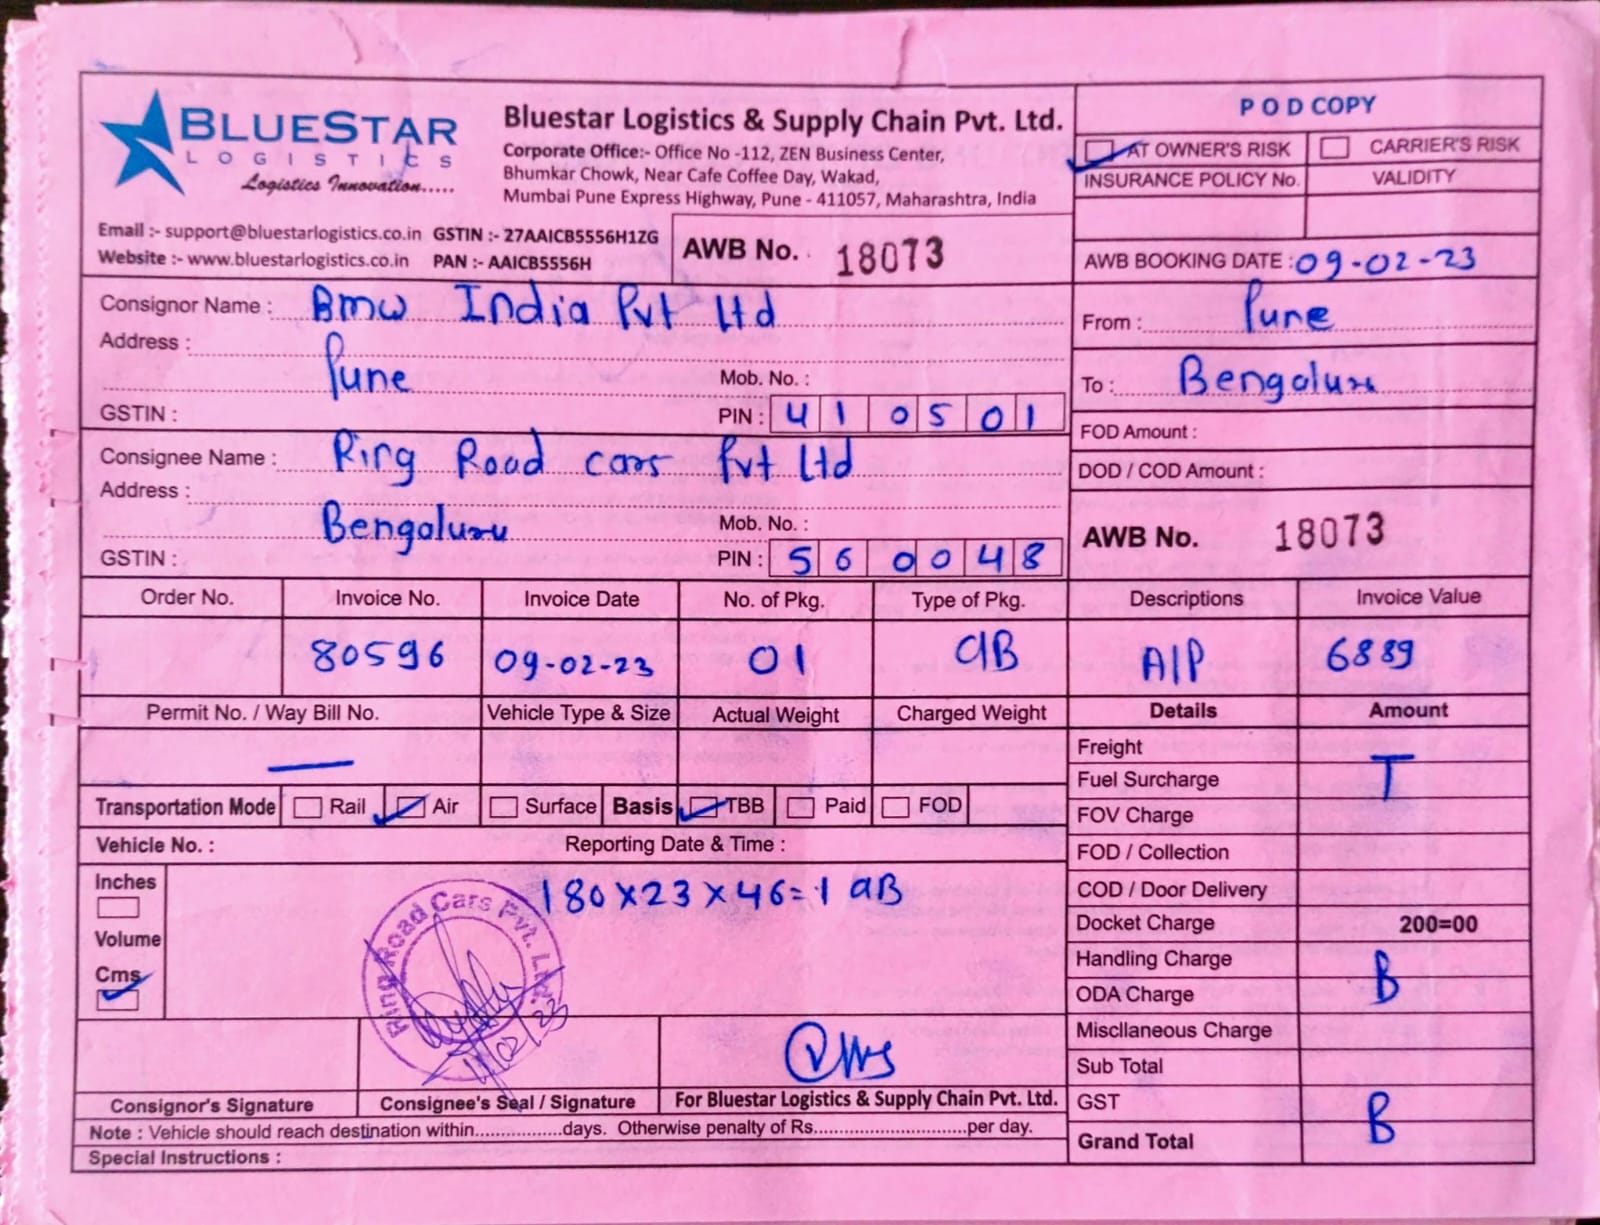 BLUESTAR
LOGISTICS
Logistics Innovation.....
Bluestar Logistics & Supply Chain Pvt. Ltd.
Corporate Office:- Office No -112, ZEN Business Center,
Bhumkar Chowk, Near Cafe Coffee Day, Wakad,
Mumbai Pune Express Highway, Pune - 411057, Maharashtra, India
Email :- support@bluestarlogistics.co.in GSTIN :- 27AAICB5556H1ZG
Website :- www.bluestarlogistics.co.in PAN :- AAICB5556H
AWB No. 18073
POD COPY
AT OWNER'S RISK CARRIER'S RISK
INSURANCE POLICY No. VALIDITY
AWB BOOKING DATE : 09-02-23
Consignor Name : Bmw India Pvt Ltd
Address :
Pune Mob. No. :
GSTIN : PIN : 410501
From : Pune
To : Bengaluru
Consignee Name : Ring Road cars Pvt Ltd
Address :
Bengaluru Mob. No. :
GSTIN : PIN : 560048
FOD Amount :
DOD / COD Amount :
AWB No. 18073
Order No. Invoice No. Invoice Date No. of Pkg. Type of Pkg. Descriptions Invoice Value
80596 09-02-23 01 CIB A/P 6889
Permit No. / Way Bill No. Vehicle Type & Size Actual Weight Charged Weight Details Amount
—
Transportation Mode Rail Air Surface Basis TBB Paid FOD
Vehicle No. : Reporting Date & Time :
Inches
Volume
Cms
180×23×46=1 CIB
Ring Road Cars Pvt. Ltd.
Freight
Fuel Surcharge T
FOV Charge
FOD / Collection
COD / Door Delivery
Docket Charge 200=00
Handling Charge
ODA Charge B
Miscllaneous Charge
Sub Total
GST B
Grand Total
Consignor's Signature Consignee's Seal / Signature For Bluestar Logistics & Supply Chain Pvt. Ltd.
Note : Vehicle should reach destination within.................days. Otherwise penalty of Rs............................per day.
Special Instructions :